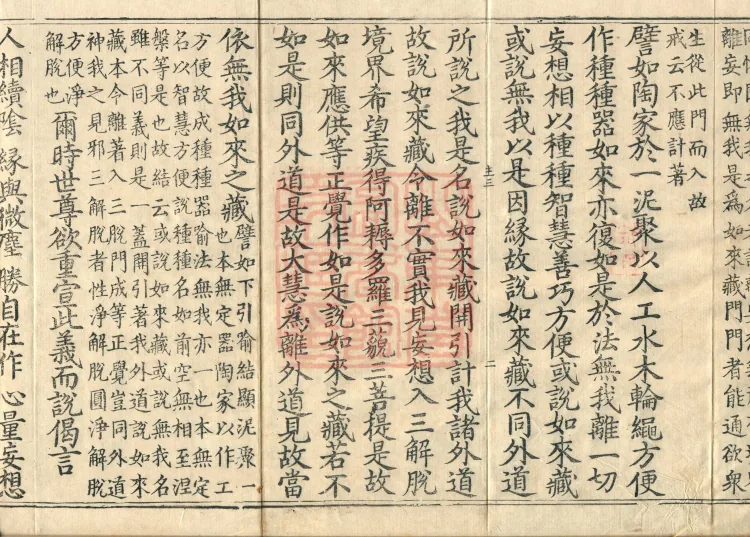 離妄即無我是為如來藏門門者能通欲衆
生從此門而入故
戒云不應計著
譬如陶家於一泥聚以人工水木輪繩方便
作種種器如來亦復如是於法無我離一切
妄想相以種種智慧善巧方便或說如來藏
或說無我以是因緣故說如來藏不同外道
主三 二
所說之我是名說如來藏開引計我諸外道
故說如來藏令離不實我見妄想入三解脫
境界希望疾得阿耨多羅三藐三菩提是故
如來應供等正覺作如是說如來之藏若不
如是則同外道是故大慧為離外道見故當
依無我如來之藏譬如下引喻結顯泥聚一
也本無定器陶家以作工
方便故成種種器喻法無我亦一也本無定
名以智慧方便說種種名如前空無相至涅
槃等是也故結云或說如來藏或說無我名
雖不同義則是一蓋開引著我外道說如來
藏本令離著入三脫門成等正覺豈同外道
神我之見邪三解脫者性淨解脫圓淨解脫
方便淨
解脫也爾時世尊欲重宣此義而說偈言
人相續陰 緣與微塵 勝自在作 心量妄想